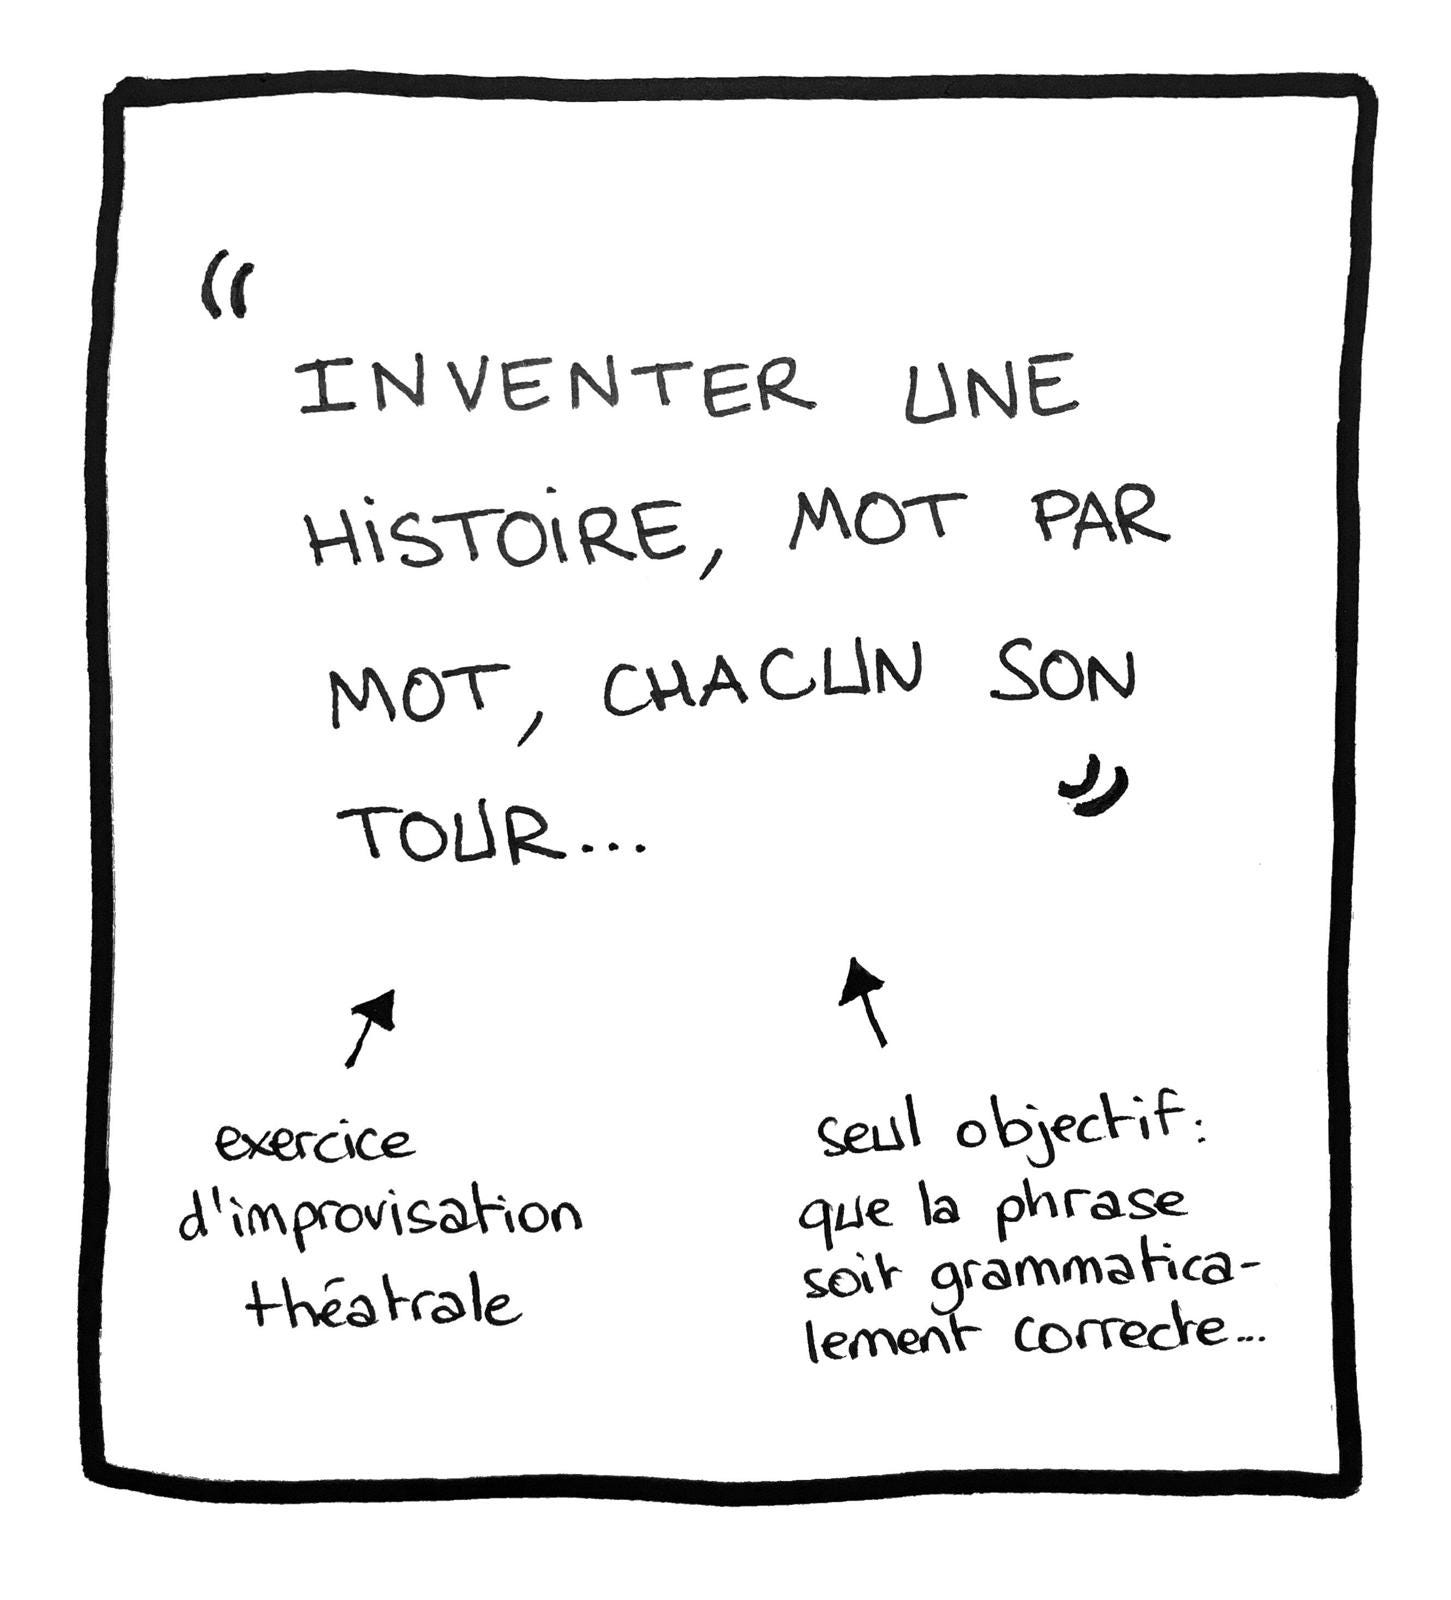 “
INVENTER UNE
HISTOIRE, MOT PAR
MOT, CHACUN SON
TOUR...
”
exercice
d'improvisation
théatrale
seul objectif:
que la phrase
soit grammatica-
lement correcte...